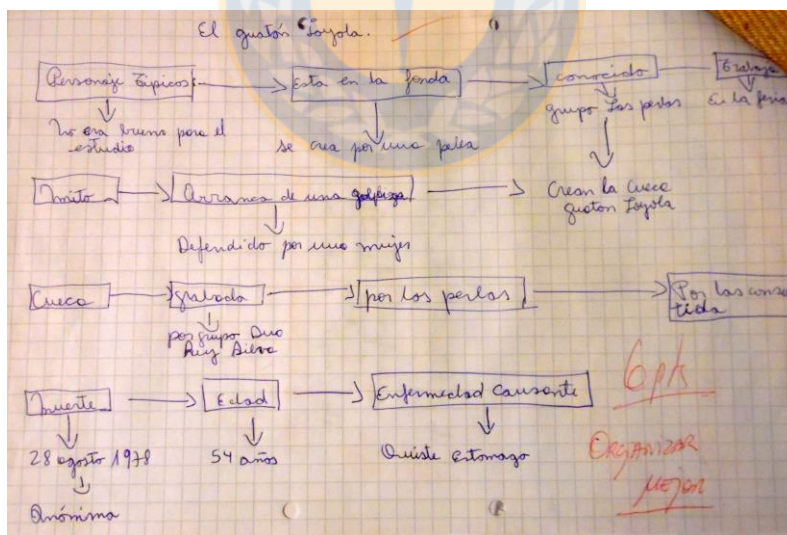 El guatón "Loyola.
Personaje Tipicos
Esta en la fonda
conocido
trabaja
No era bueno para el
estudio
se crea por una pelea
grupo Los perlas
En la feria
mito
Arranca de una golpiza
Crean la Cueca
guaton Loyola
Defendido por una mujer
Cueca
grabada
por los perlas
Por las conse
tida
por grupo Duo
Rey Silva
muerte
Edad
Enfermedad causante
28 agosto 1978
54 años
Quiste estomago
Anónima
6 pts
ORGANIZAR
MEJOR